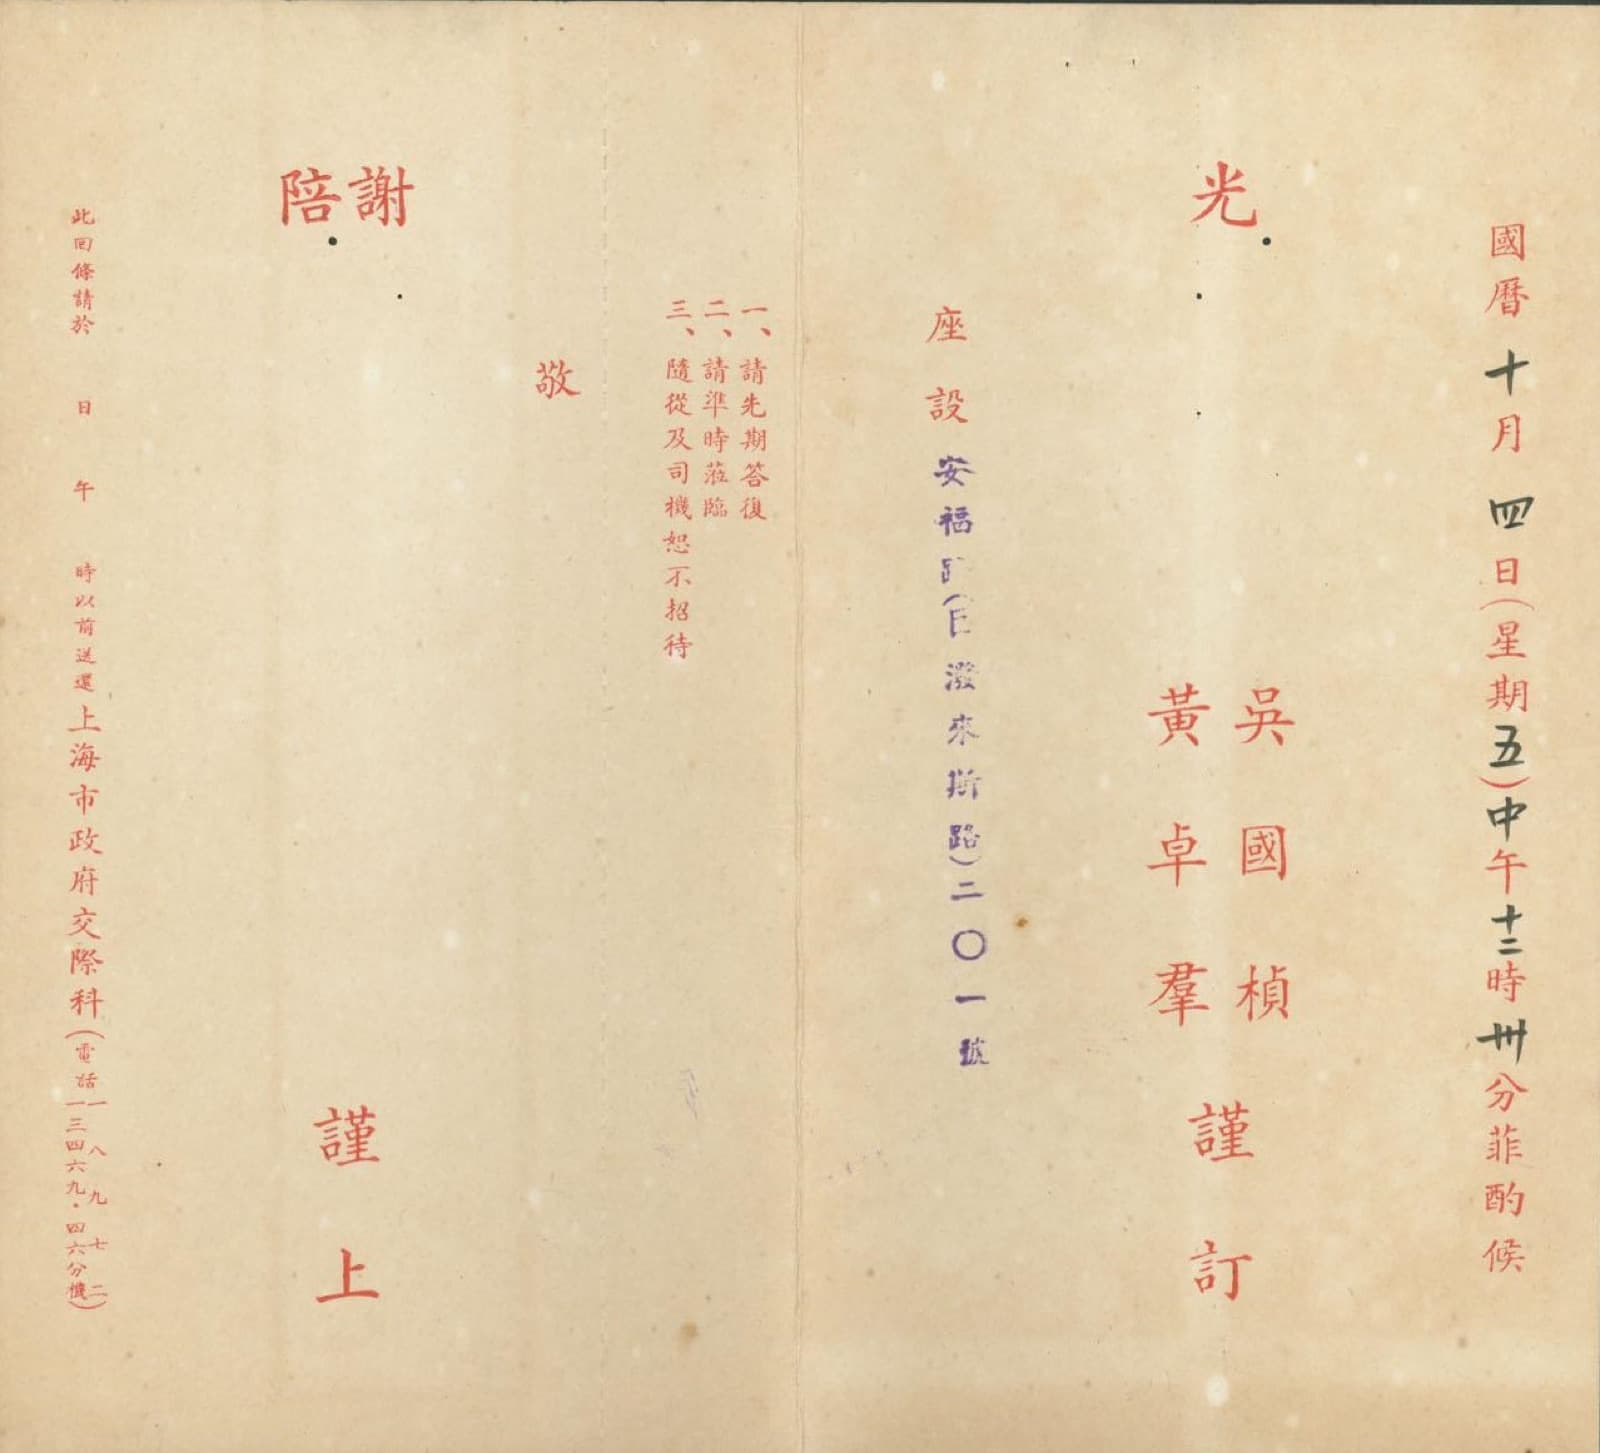 國曆十月四日(星期五)中午十二時卅分菲酌候
光
吳國楨
黃卓羣
謹訂
座設安福路(巨潑來斯路)二〇一號
一、請先期答復
二、請準時蒞臨
三、隨從及司機恕不招待
敬
謝陪
謹上
此回條請於 日 午 時以前送還上海市政府交際科(電話一八九七二
一三四六九·四六分機)